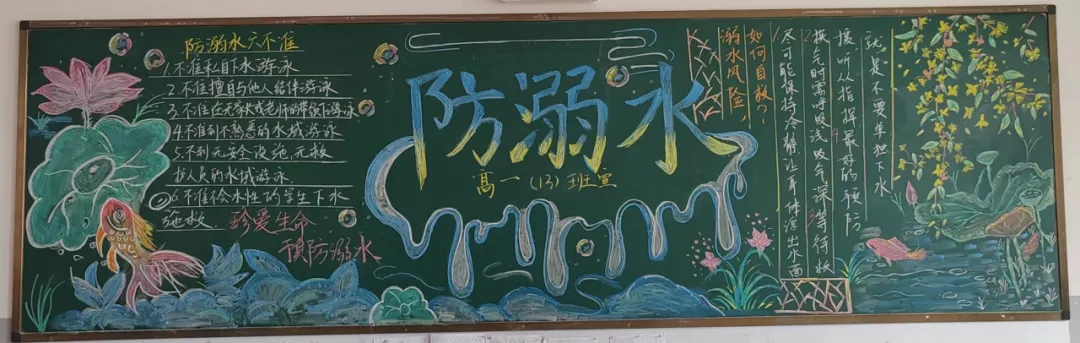 防溺水六不准
1.不准私自下水游泳
2.不准擅自与他人结伴游泳
3.不准在无家长或老师的带领下游泳
4.不准到不熟悉的水域游泳
5.不到无安全设施、无救
护人员的水域游泳
6.不准会水性的学生下水
施救
珍爱生命
预防溺水
防溺水
高一(13)班宣
溺水风险,
如何自救?
1.尽可能保持冷静,让身体浮出水面
2.换气时需呼吸浅吸气深3.等待救
援听从指挥4.最好的预防
就是不要单独下水